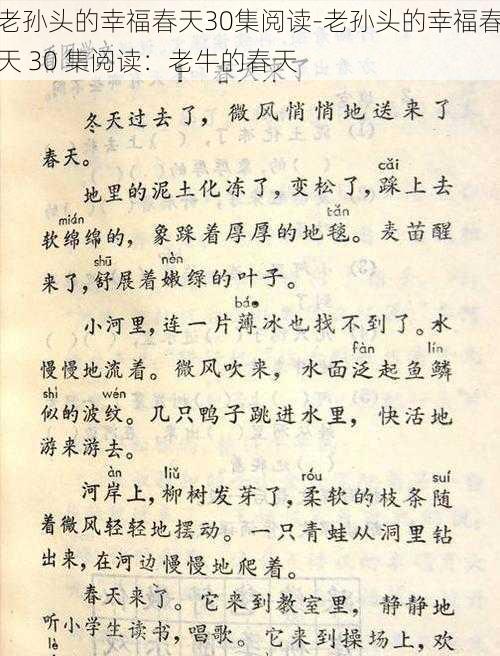 老孙头的幸福春天30集阅读-老孙头的幸福春
天 30 集阅读：老牛的春天
春天来了
冬天过去了，微风悄悄地送来了
春天。
cǎi
地里的泥土化冻了，变松了，踩上去
mián tǎn
软绵绵的，象踩着厚厚的地毯。麦苗醒
shū nèn
来了，舒展着嫩绿的叶子。
báo
小河里，连一片薄冰也找不到了。水
fàn lín
慢慢地流着。微风吹来，水面泛起鱼鳞
shì wén
似的波纹。几只鸭子跳进水里，快活地
游来游去。
àn liǔ róu suí
河岸上，柳树发芽了，柔软的枝条随
着微风轻轻地摆动。一只青蛙从洞里钻
出来，在河边慢慢地爬着。
春天来了。它来到教室里，静静地
听小学生读书，唱歌。它来到操场上，欢